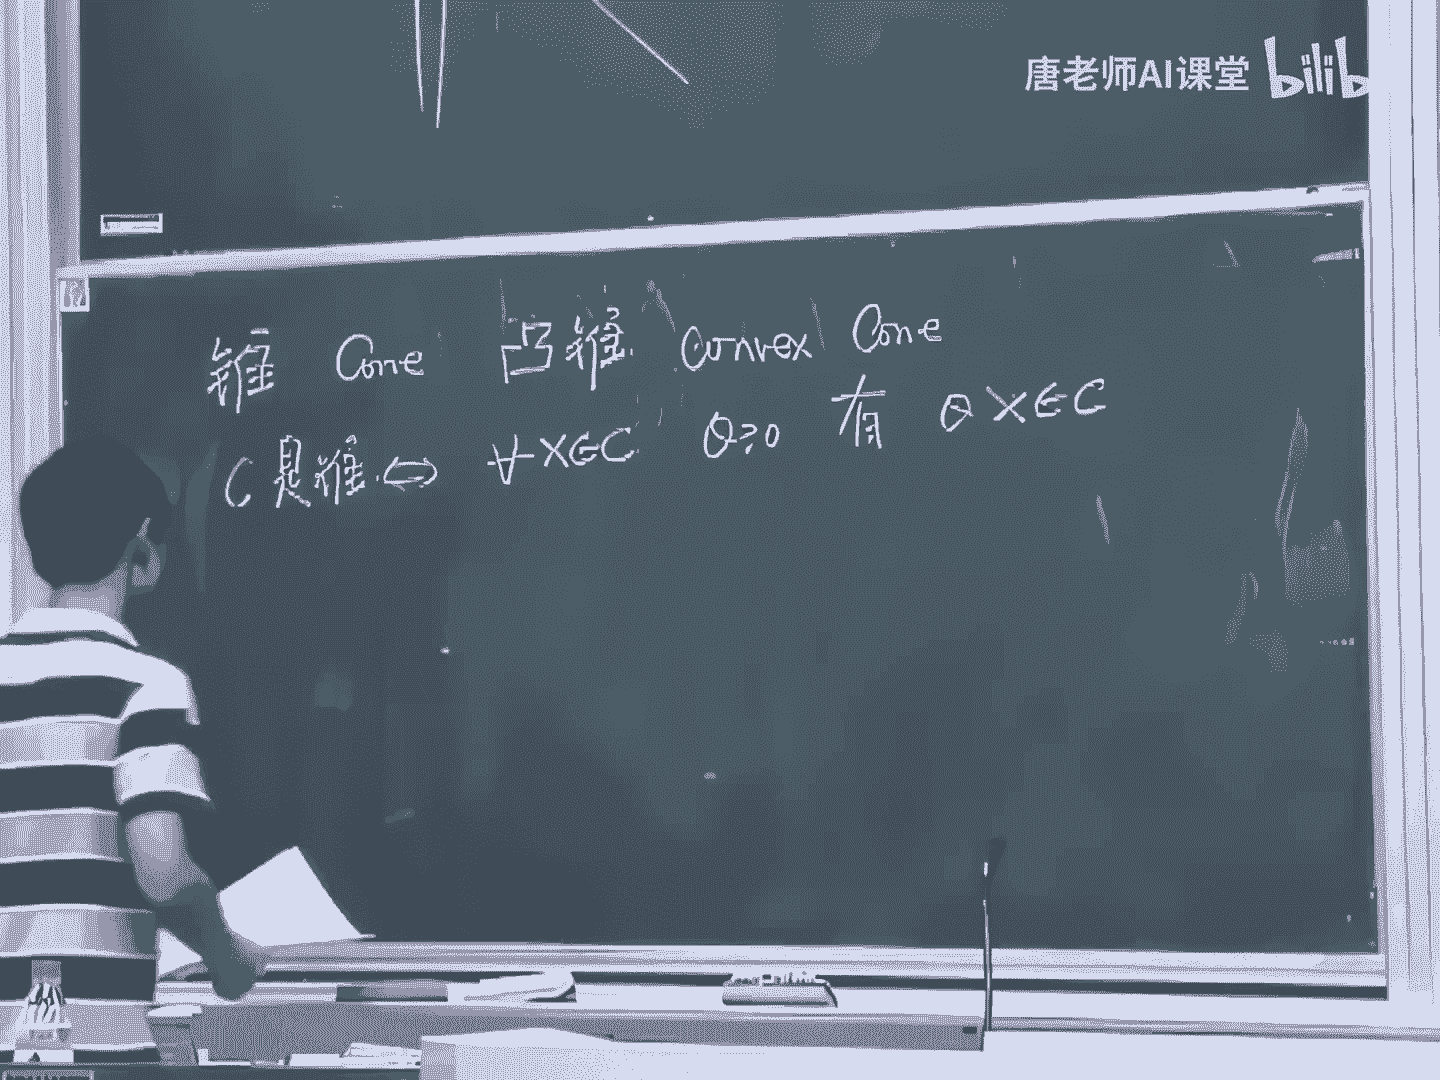 唐老师AI课堂 bilib
锥 Cone 凸锥 Convex Cone
C是锥 ⇔ ∀ x∈C θ≥0 有 θx∈C